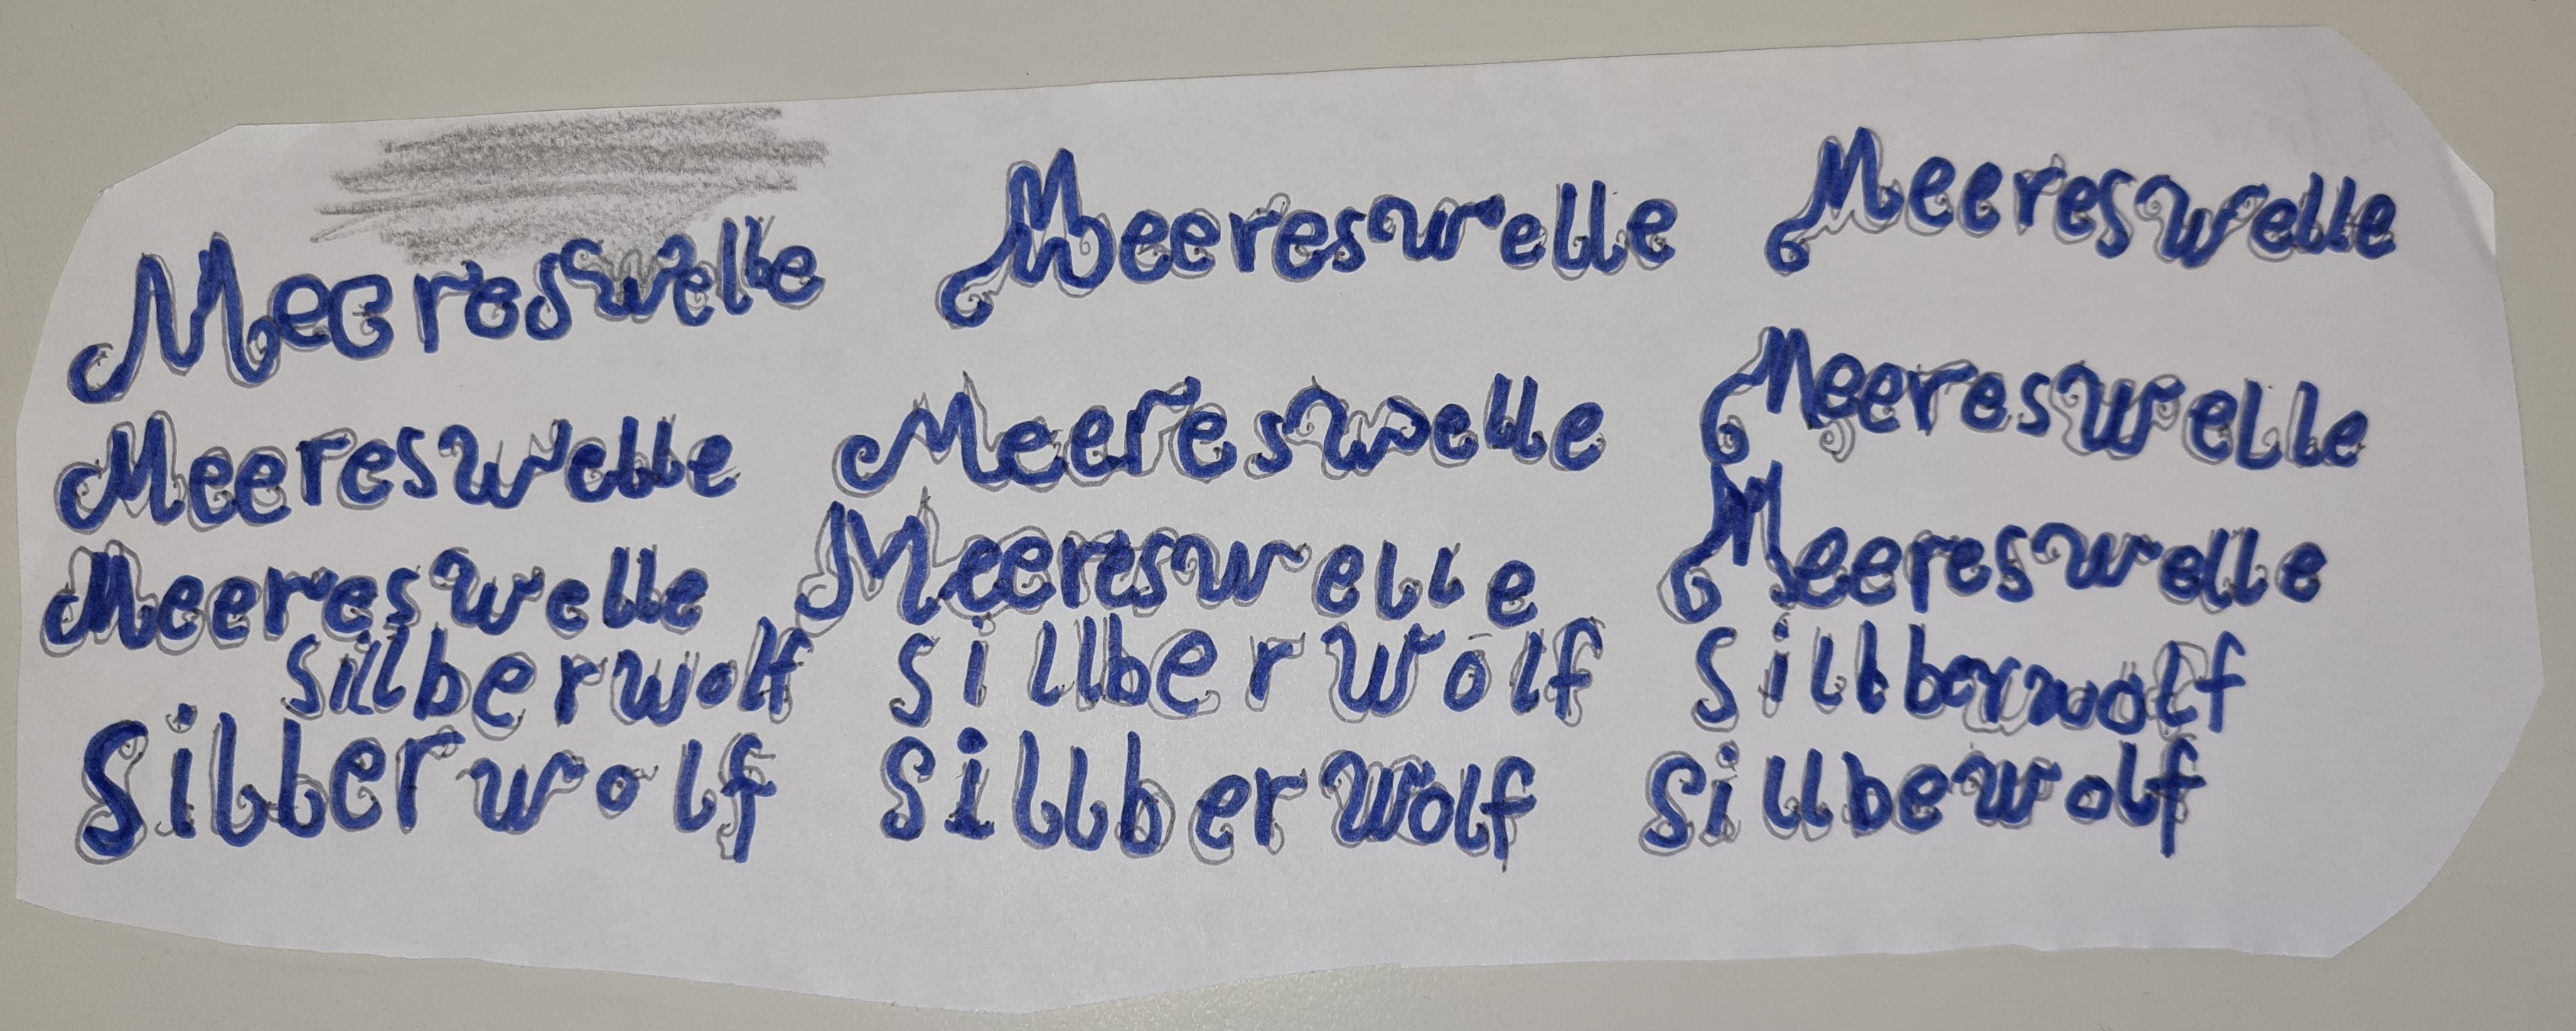 Meereswelle Meereswelle Meereswelle
Meereswelle Meereswelle Meereswelle
Meereswelle Meereswelle Meereswelle
silberwolf sillberwolf sillberwolf
silberwolf sillberwolf sillbewolf